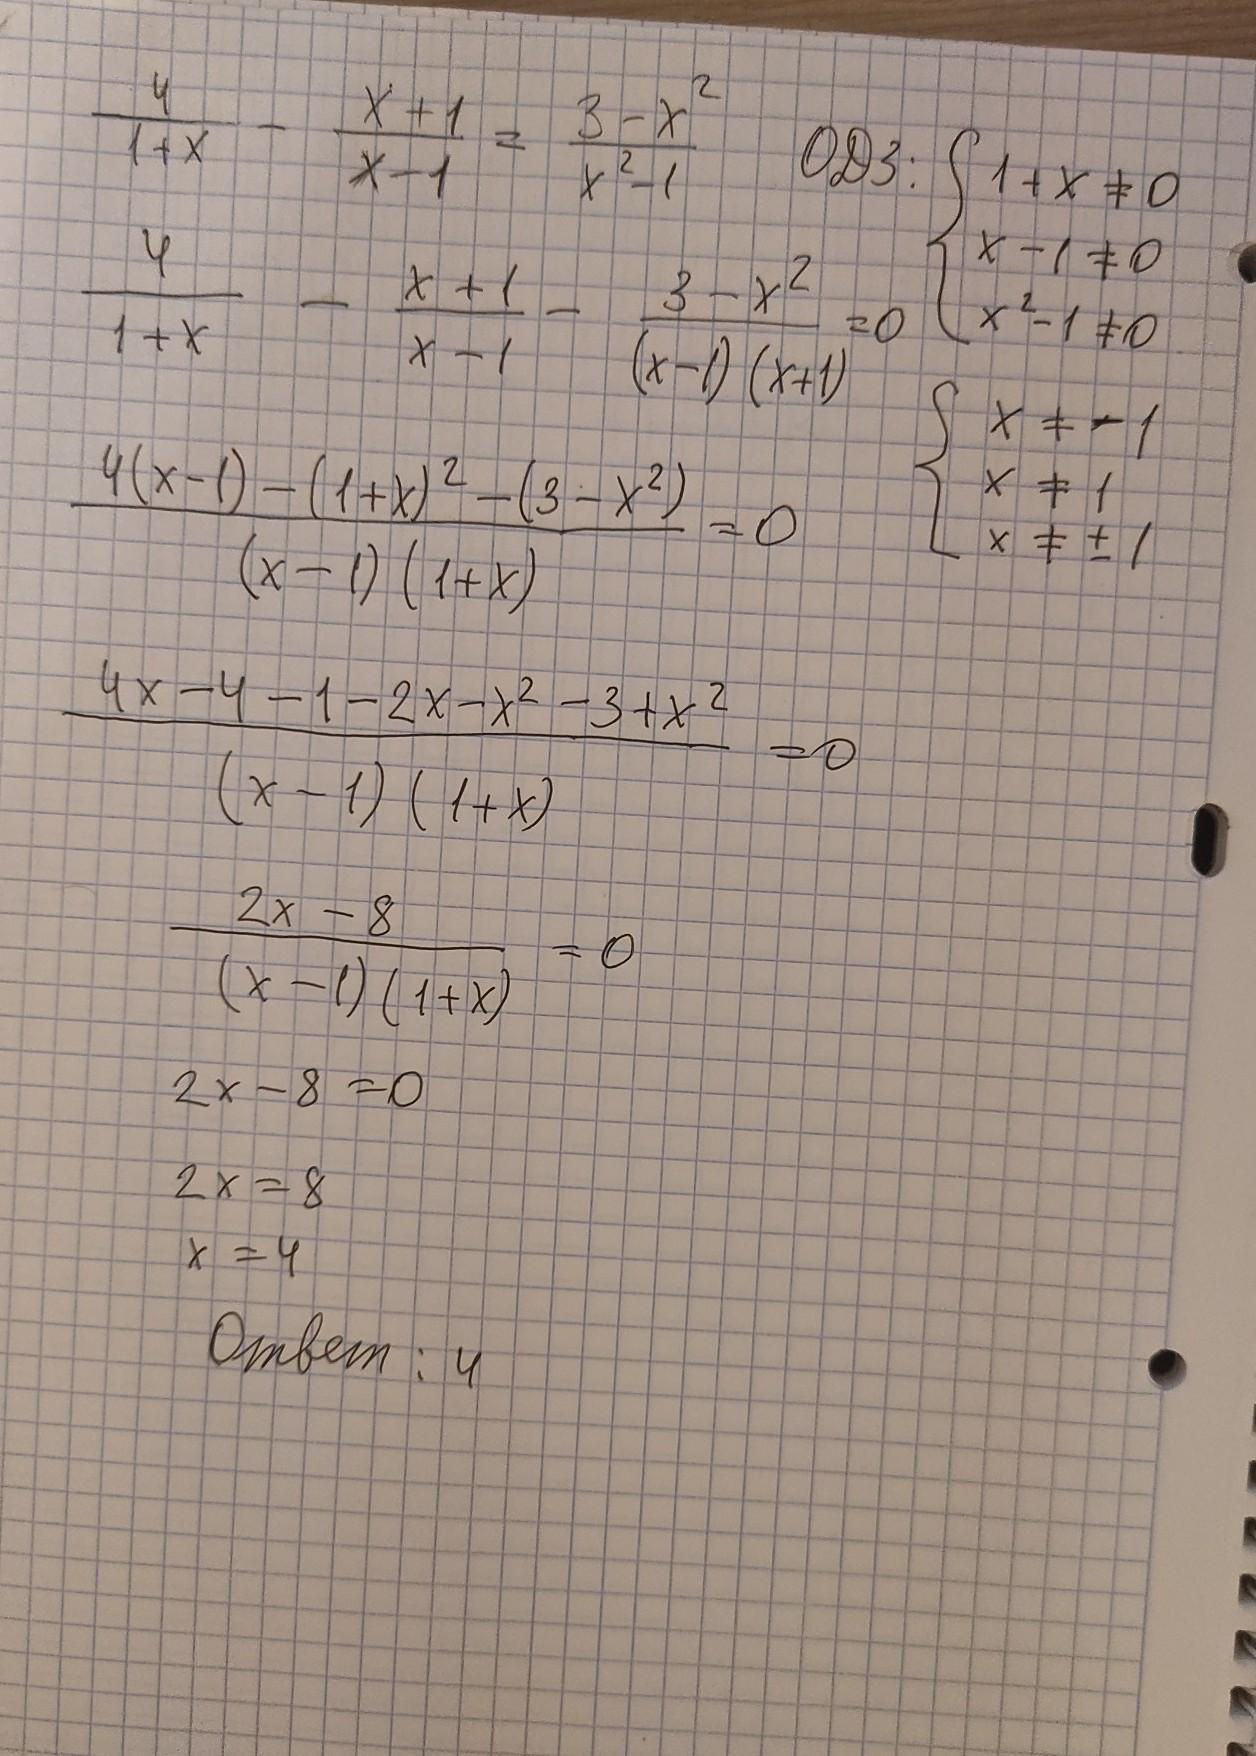 4/(1+x) - (x+1)/(x-1) = (3-x²)/(x²-1)
ОДЗ: { 1+x ≠ 0
x-1 ≠ 0
x²-1 ≠ 0
{ x ≠ -1
x ≠ 1
x ≠ ±1
4/(1+x) - (x+1)/(x-1) - (3-x²)/((x-1)(x+1)) = 0
(4(x-1) - (1+x)² - (3-x²))/((x-1)(1+x)) = 0
(4x-4-1-2x-x²-3+x²)/((x-1)(1+x)) = 0
(2x-8)/((x-1)(1+x)) = 0
2x-8=0
2x=8
x=4
Ответ: 4